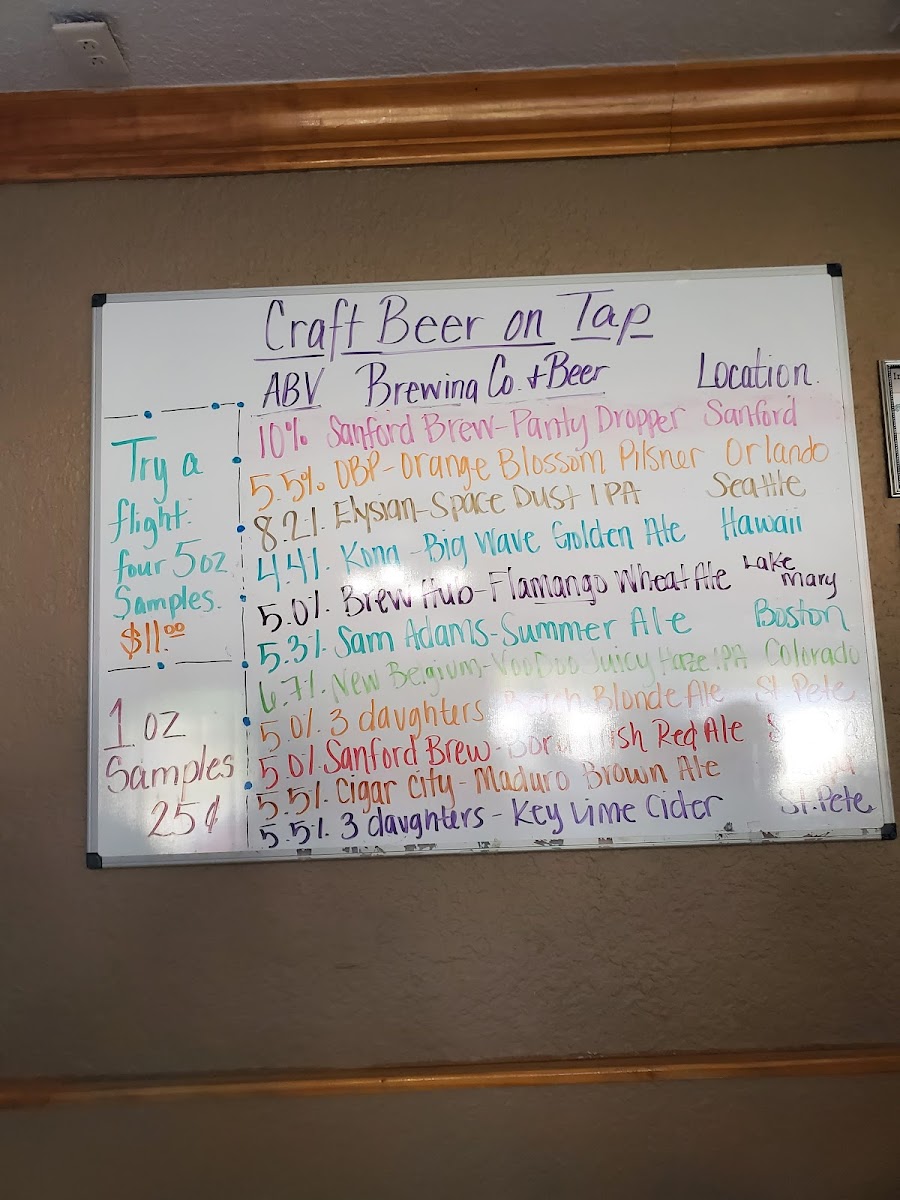 Craft Beer on Tap
ABV Brewing Co. + Beer Location
10% Sanford Brew-Panty Dropper Sanford
5.5% OBP-Orange Blossom Pilsner Orlando
8.2% Elysian-Space Dust IPA Seattle
4.4% Kona-Big Wave Golden Ale Hawaii
5.0% Brew Hub-Flamango Wheat Ale Lake Mary
5.3% Sam Adams-Summer Ale Boston
6.7% New Begium-VooDoo Juicy Haze IPA Colorado
5.0% 3 daughters Beach Blonde Ale St. Pete
5.0% Sanford Brew- Red Ale
5.5% Cigar City-Maduro Brown Ale
5.5% 3 daughters-Key Lime Cider St. Pete
Try a
flight:
four 5oz
Samples.
$11.00
1 oz
Samples
25¢